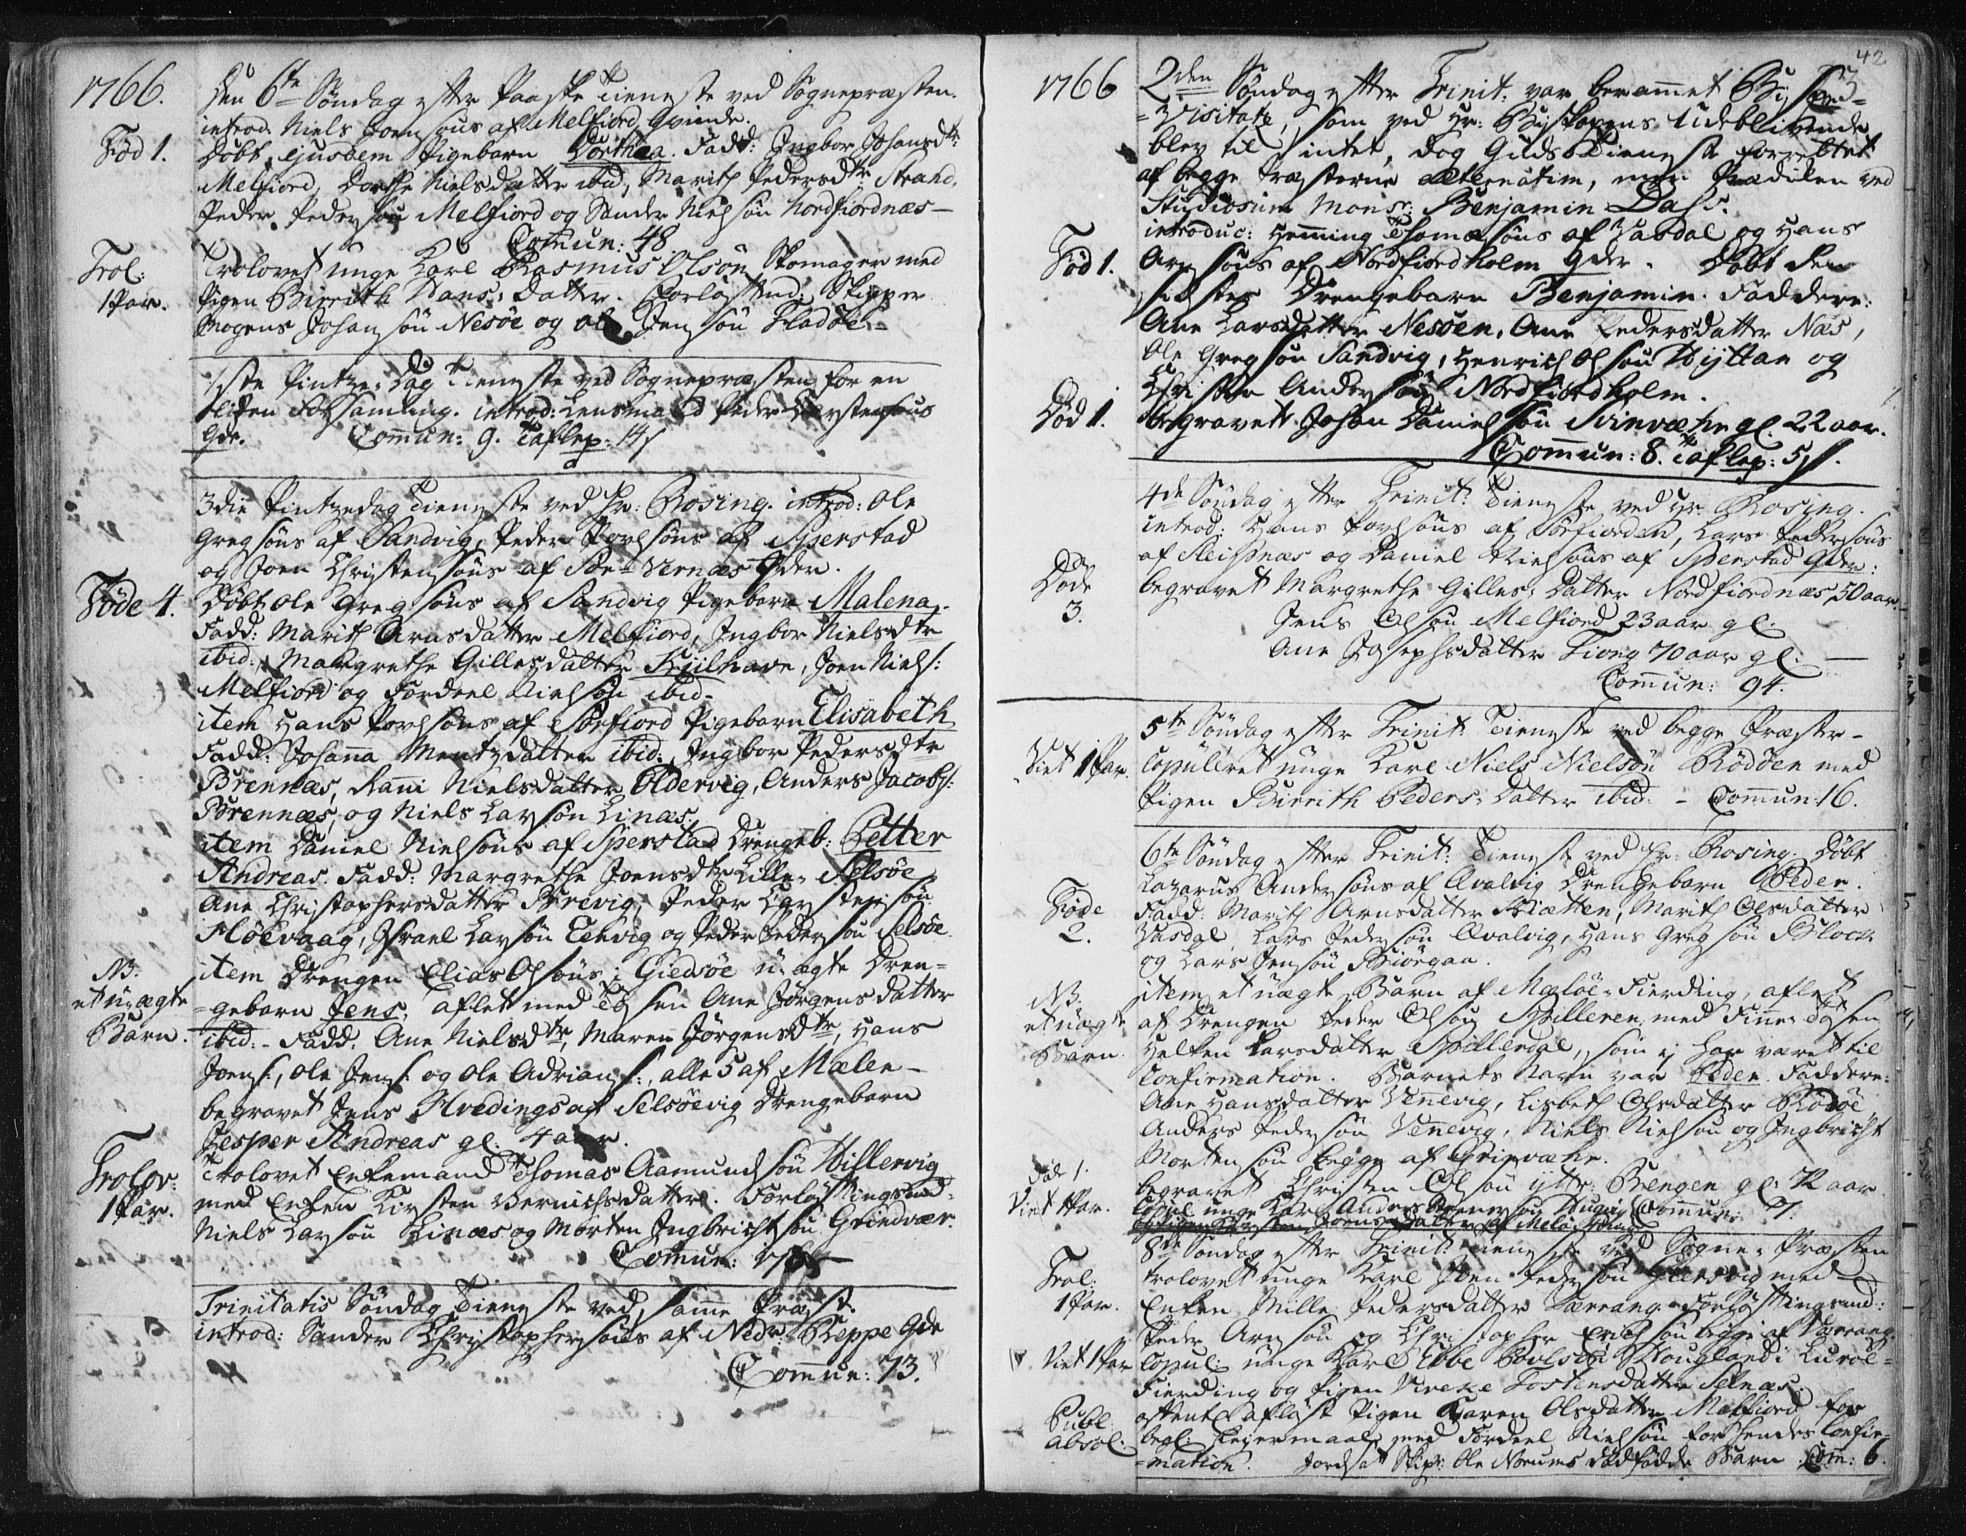 1766.
Den 6te Søndag efter Paaske Tieneste ved Sognepræsten.
introd. Niels Joensøns af Melfiord qvinde.
Fød 1.
Døbt ejusdem Pigebarn Dorthea. Fadd: Ingbor Johansdtr
Melfiord, Dorthe Nielsdatter ibid, Marith Pedersdtr Strand,
Peder Pedersøn Melfiord og Sander Nielsøn Nordfiordnæs —
Com̄un: 48
Trol:
1 Par.
Trolovet unge Karl Rasmus Olsøn Skomager med
Pigen Birrith Hans-Datter. Forløftnd: Skipper
Mogens Johansøn Nesøe og Ole Jensøn Fladøe. —
1ste Pintze-Dag Tieneste ved Sognepræsten for en
liden Forsamling. introd: Lensmand Peder Carstensøns
Qde. Com̄un: 9. Taflep: 14 s
3die Pintzedag Tieneste ved Hr: Rosing. introd: Ole
Gregsøns af Sandvig, Peder Povelsøns af Sperstad
og Joen Christensøns af Vernæs Qder.
Føde 4.
Døbt Ole Gregsøns af Sandvig Pigebarn Malena.
Fadd: Marith Arnsdatter Melfiord, Ingbor Nielsdtr
ibid: Margrethe Gillesdatter Kiilhavn, Joen Niels:
Melfiord og Fordeel Nielsøn ibid.
item Hans Povelsøns af Sørfiord Pigebarn Elisabeth
Fadd: Johanna Mentzdatter ibid: Ingbor Pedersdtr
Brennæs, Rani Nielsdatter Oldervig, Anders Jacobs:
Brennæs, og Niels Larsøn Linæs.
item Daniel Nielsøns af Sperstad Drengeb: Petter
Andreas. Fadd: Margrethe Joensdtr Lille-Selsøe,
Ane Christophersdatter Brevig, Peder Carstensøn
Fløevaag, Israel Larsøn Eehvig og Peder Pedersøn Selsøe
NB.
et u-ægte
Barn.
item Drengen Elias Olsøns i Giedsøe u-ægte Dren=
=gebarn Jens, aflet med Tøsen Ane Jørgensdatter
ibid. — Fadd: Ane Nielsdtr, Maren Jørgensdtr, Hans
Joens:, Ole Jens: og Ole Adrians:, alle 5 af Mælen —
begravet Jens Hvedings af Selsøevig Drengebarn
Jesper Andreas gl: 4 aar.
Trolov:
1 Par.
Trolovet Enkemand Thomas Aamundsøn Hillervig
med Enken Kirsten Berntsdatter. Forløftningsmd:
Niels Larsøn Linæs og Morten Ingbrichtsøn Grindvær.
Com̄un:
Trinitatis Søndag Tieneste ved sam̄e Præst.
introd: Sander Christophersøns af Nedr Reppe Qde
Com̄un: 73.
42
1766
2den Søndag efter Trinit: var beram̄et Bispe=
=Visitatz, som ved Hr: Biskopens Udeblivende
blev til intet, dog Guds Tieneste forrettet
af begge Præsterne alternatim, men Prædiken ved
Studiosum Monsr: Benjamin Dass.
introduc: Hemming Thomæsøns af Vasdal og Hans
Fød 1.
Arnsøns af Nordfiordholm Qder. Døbt den
sidstes Drengebarn Benjamin. Faddere:
Ane Larsdatter Nesøen, Ane Pedersdatter Næs,
Ole Gregsøn Sandvig, Henrich Olsøn Hyttan og
Christen Andersøn Nordfiordholm.
Død 1.
begravet Johan Danielsøn Svinvær gl: 22 aar.
Com̄un: 8. Taflep: 5 s.
4de Søndag efter Trinit: Tieneste ved Hr Rosing.
introd: Hans Povelsøns af Sørfiorden, Lars Pedersøns
af Kleifsnæs og Daniel Nielsøns af Sperstad Qder:
Døde
3.
begravet Margrethe Gilles-Datter Nordfiordnæs, 50 aar.
Jens Olsøn Melfiord 23 aar gl.
Ane Josephsdatter Tiong 70 aar gl: —
Com̄un: 94.
5te Søndag efter Trinit: Tieneste ved begge Præster —
Viet 1 Par.
Copuleret unge Karl Niels Nielsøn Rødøen med
Pigen Birrith Peders-Datter ibid: — Com̄un: 16.
6te Søndag efter Trinit: Tieneste ved Hr: Rosing. Døbt
Føde
2.
Lazarus Andersøns af Qvalvig Drengebarn Peder.
Fadd: Marith Arnsdatter Klætten, Marith Olsdatter
Vasdal, Lars Pedersøn Qvalvig, Hans Gregsøn Bloch
og Lars Jensøn Biørgaa.
NB.
et uægte
Barn.
item et uægte Barn af Meløe-Fierding, aflet
af Drengen Peder Olsøn Spilleren med Finne-Tøsen
Helken Larsdatter Spilderdal, som ej har været til
Confirmation. Barnets Navn var Peder. Faddere:
Ane Hansdatter Venevig, Lisbeth Olsdatter Rødøe
Anders Pedersøn Venevig, Niels Nielsøn og Ingbricht
Mortensøn begge af Grinvær.
Død 1.
begravet Christen Olsøn ytter Bengen gl: 72 aar
Viet 1 Par.
Copul: unge Karl Anders Com̄un: 7.
og Pigen Joens-Datter af Meløe
8de Søndag efter Trinit: Tieneste ved Sogne-Præsten
Trol:
1 Par.
trolovet unge Karl Joen Pedersøn med
Enken Mille Pedersdatter Værrang. Forløftningsmd:
Peder Arnsøn og Christopher Erichsøn begge af Værrang
Viet 1 Par
Copul: unge Karl Ebbe Povelsøn Hougland i Lurøe=
Fierding og Pigen Vivike Tostensdatter Selnæs.
Publ:
absol:
offentl: afløst Pigen Karen Olsdatter Melfiord for
begl: Leiermaal med Fordeel Nielsøn for hendes Confir=
=mation. Jordfæst Skipr: Ole Norums dødfødde Barn. Com: 6.